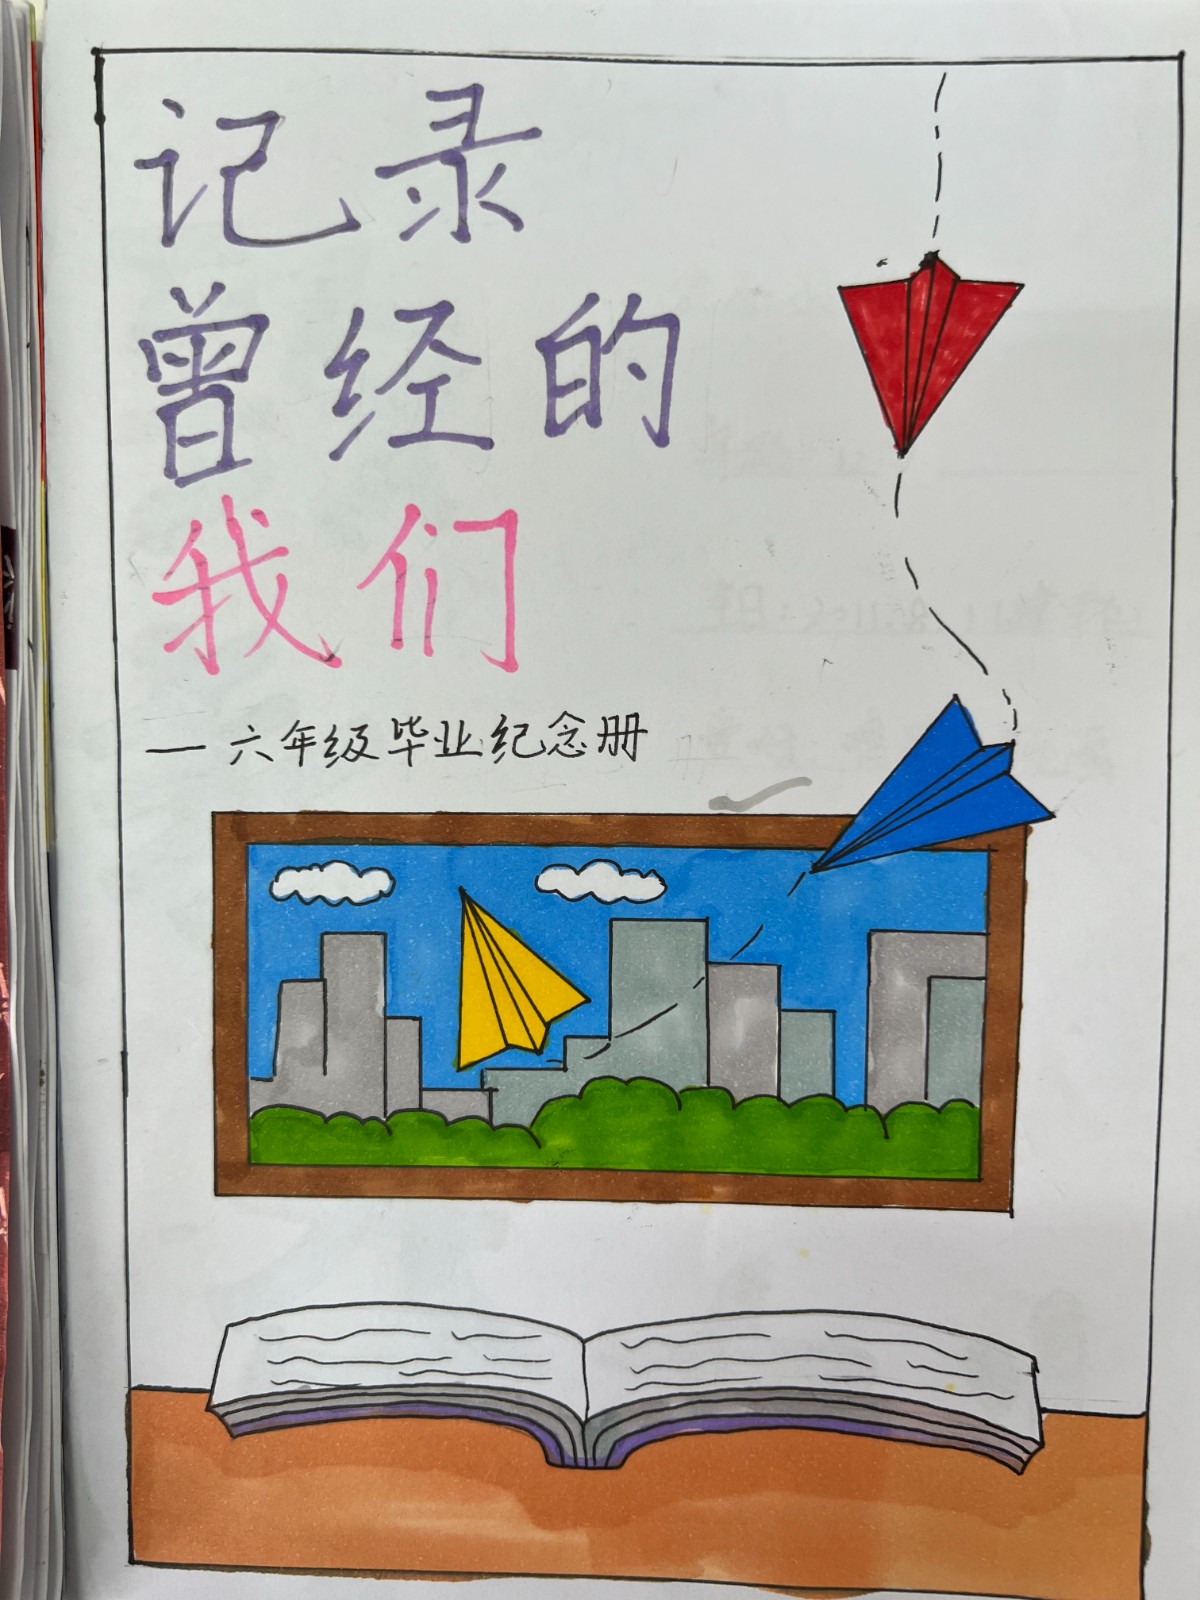 记录
曾经的
我们
—六年级毕业纪念册